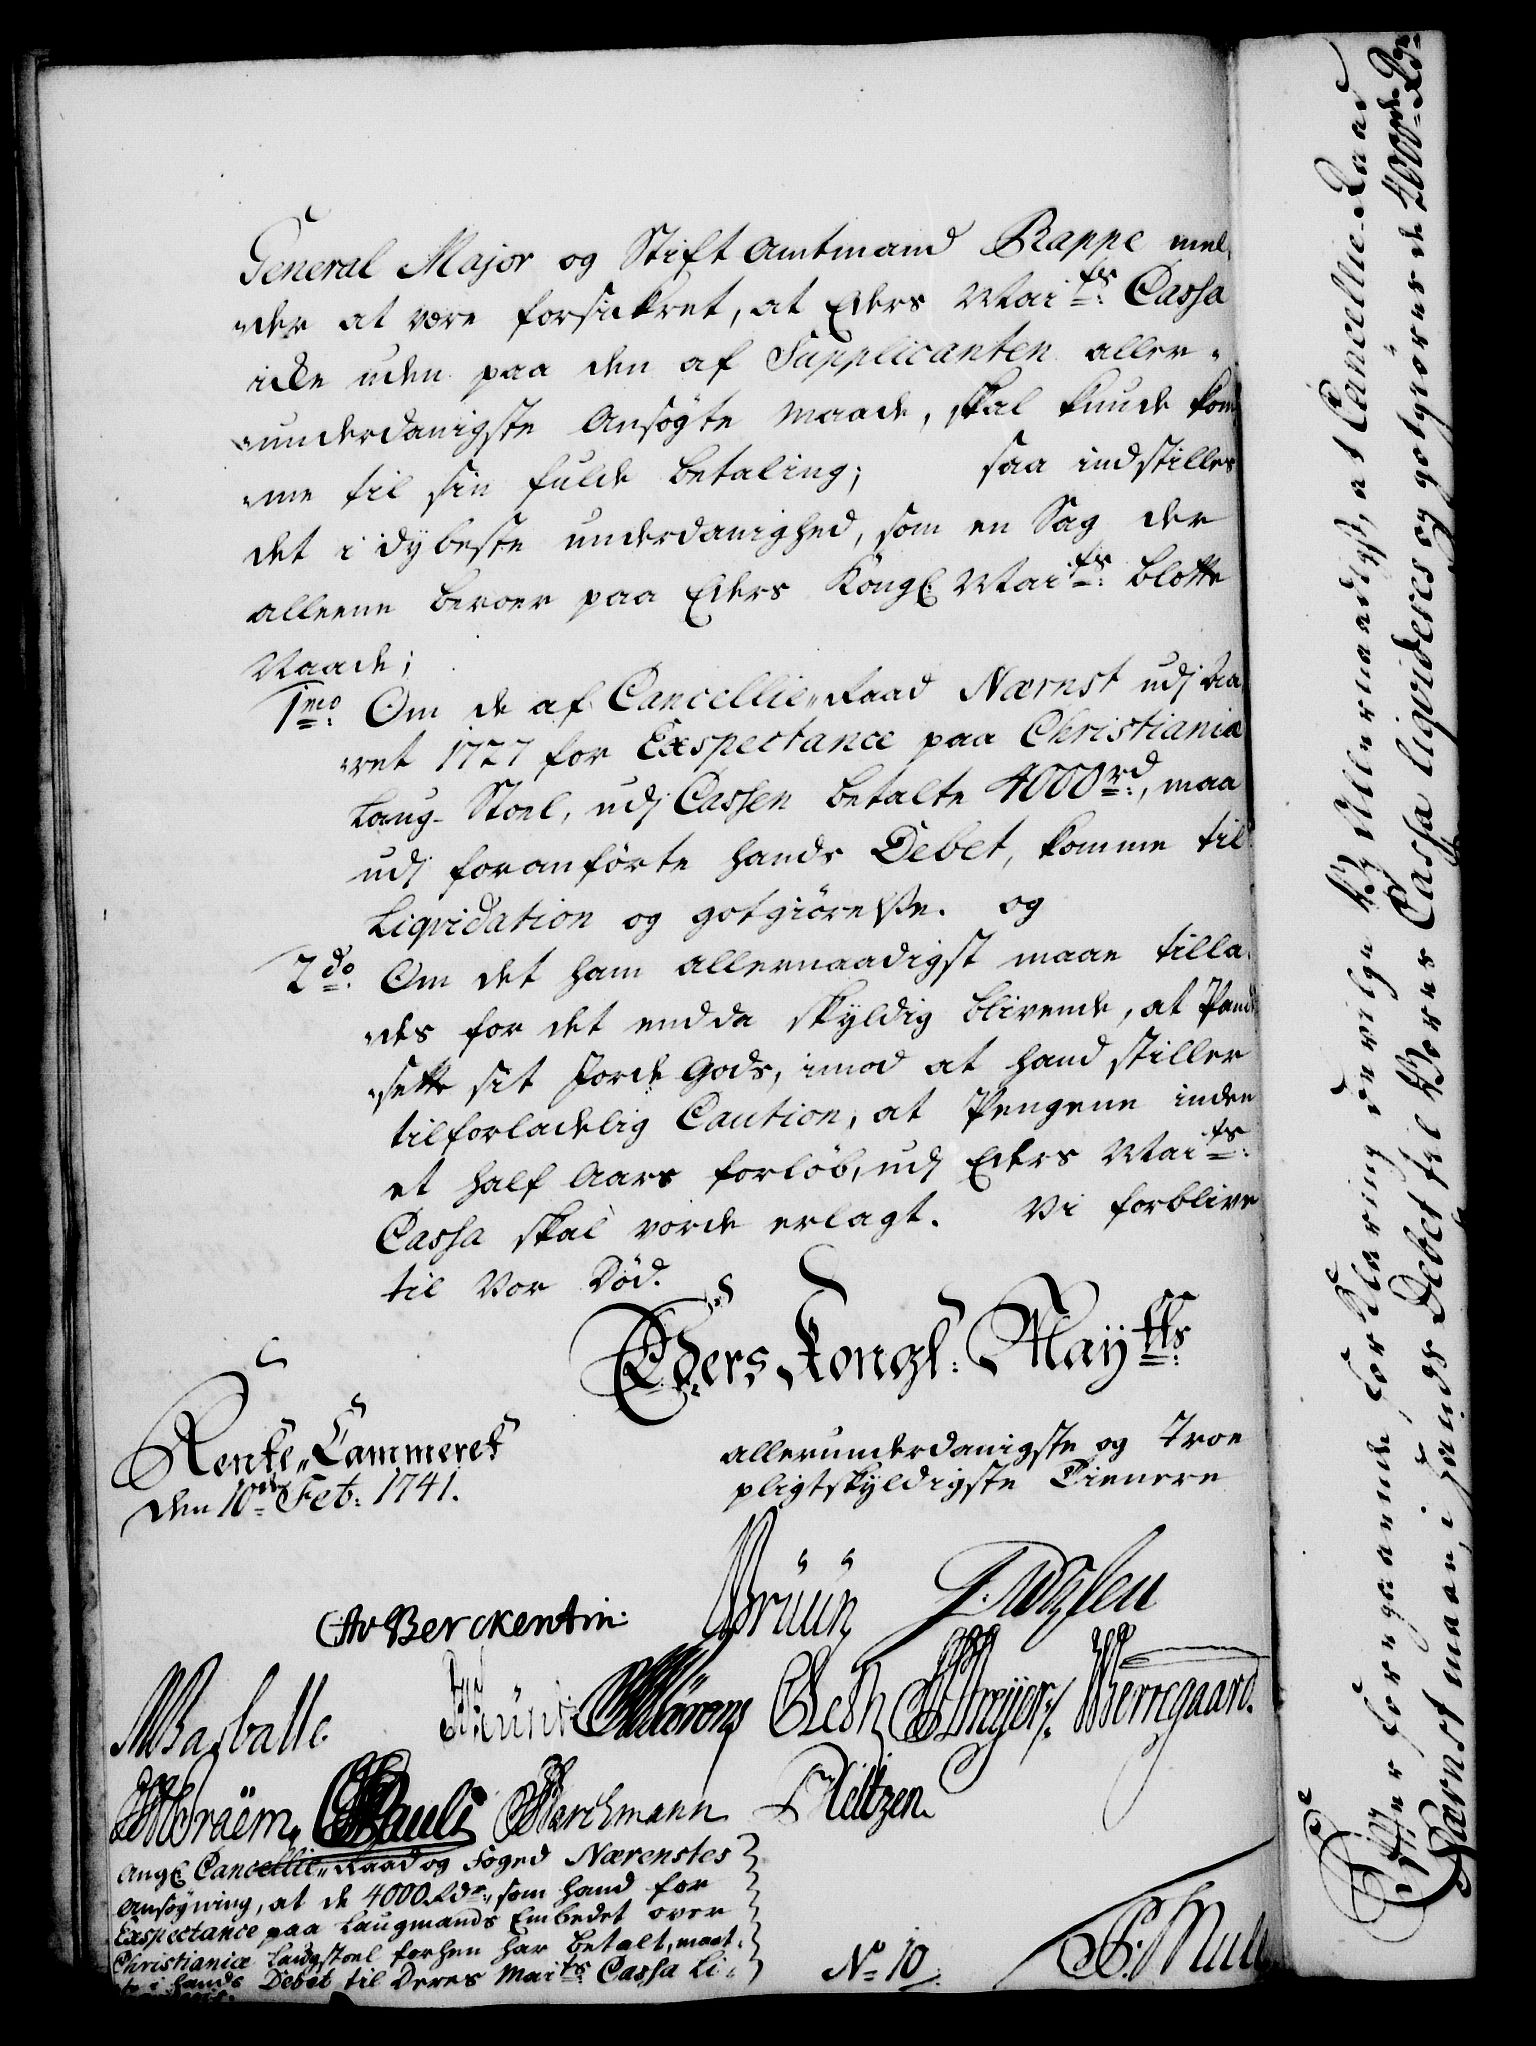 General Major og Stift Amtmand Rappe mel„
„der at være forsickret, at Eders Maits: Cassa
icke uden paa den af Supplicanten aller„
„underdanigste Ansøgte Maade, skal kunde kom„
„me til sin fulde betaling; saa indstilles
det i dybeste underdanighed, som en Sag der
alleene beroer paa Eders Köngl: Maits: blotte
Naade;
1mo Om de af Cancellie„Raad Nærnst udj Aa„
„ret 1727 for Exspectance paa Christiania
Laug-Stoel, udj Cassen betalte 4000rd:, maa
udj foranførte hands Debet, komme til
Liqvidation og gotgiørelse. og
2do: Om det ham allernaadigst maae tilla„
„des for det endda skyldig blivende, at Pand„
„sette sit Jorde Gods, imod at hand stiller
tilforladelig Caution, at Pengene inden
et half Aars forløb, udj Eders Maits:
Cassa skal vorde erlagt. Vi forblive
til Vor Død.
Eders Kongl: Maytts:
Rente„Cammeret
den 10de Feb: 1741.
allerunderdanigste og Troe
pligtskyldigste Tienere
CAv Berckentin:
Brüün
Basballe.
Meyer
Wæræm
Pauli
Barchmann
Heltzen.
Angl: Cancellie„Raad og Foged Nærenstes
Ansøgning, at de 4000 Rdr:, som hand for
Exspectance paa Laugmands Embedet over
Christianiæ Laugstoel forhen har betalt, maat„
te i hands Debet til Deres Maits: Cassa Li„
No 10.
Efter foregaaende forklaring bevilge Vj Allernaadigst, at Cancellie-Raad
Nærnst maae, i hands Debet til Vores Cassa liqvideres og gotgiøres de 4000 Rdr: